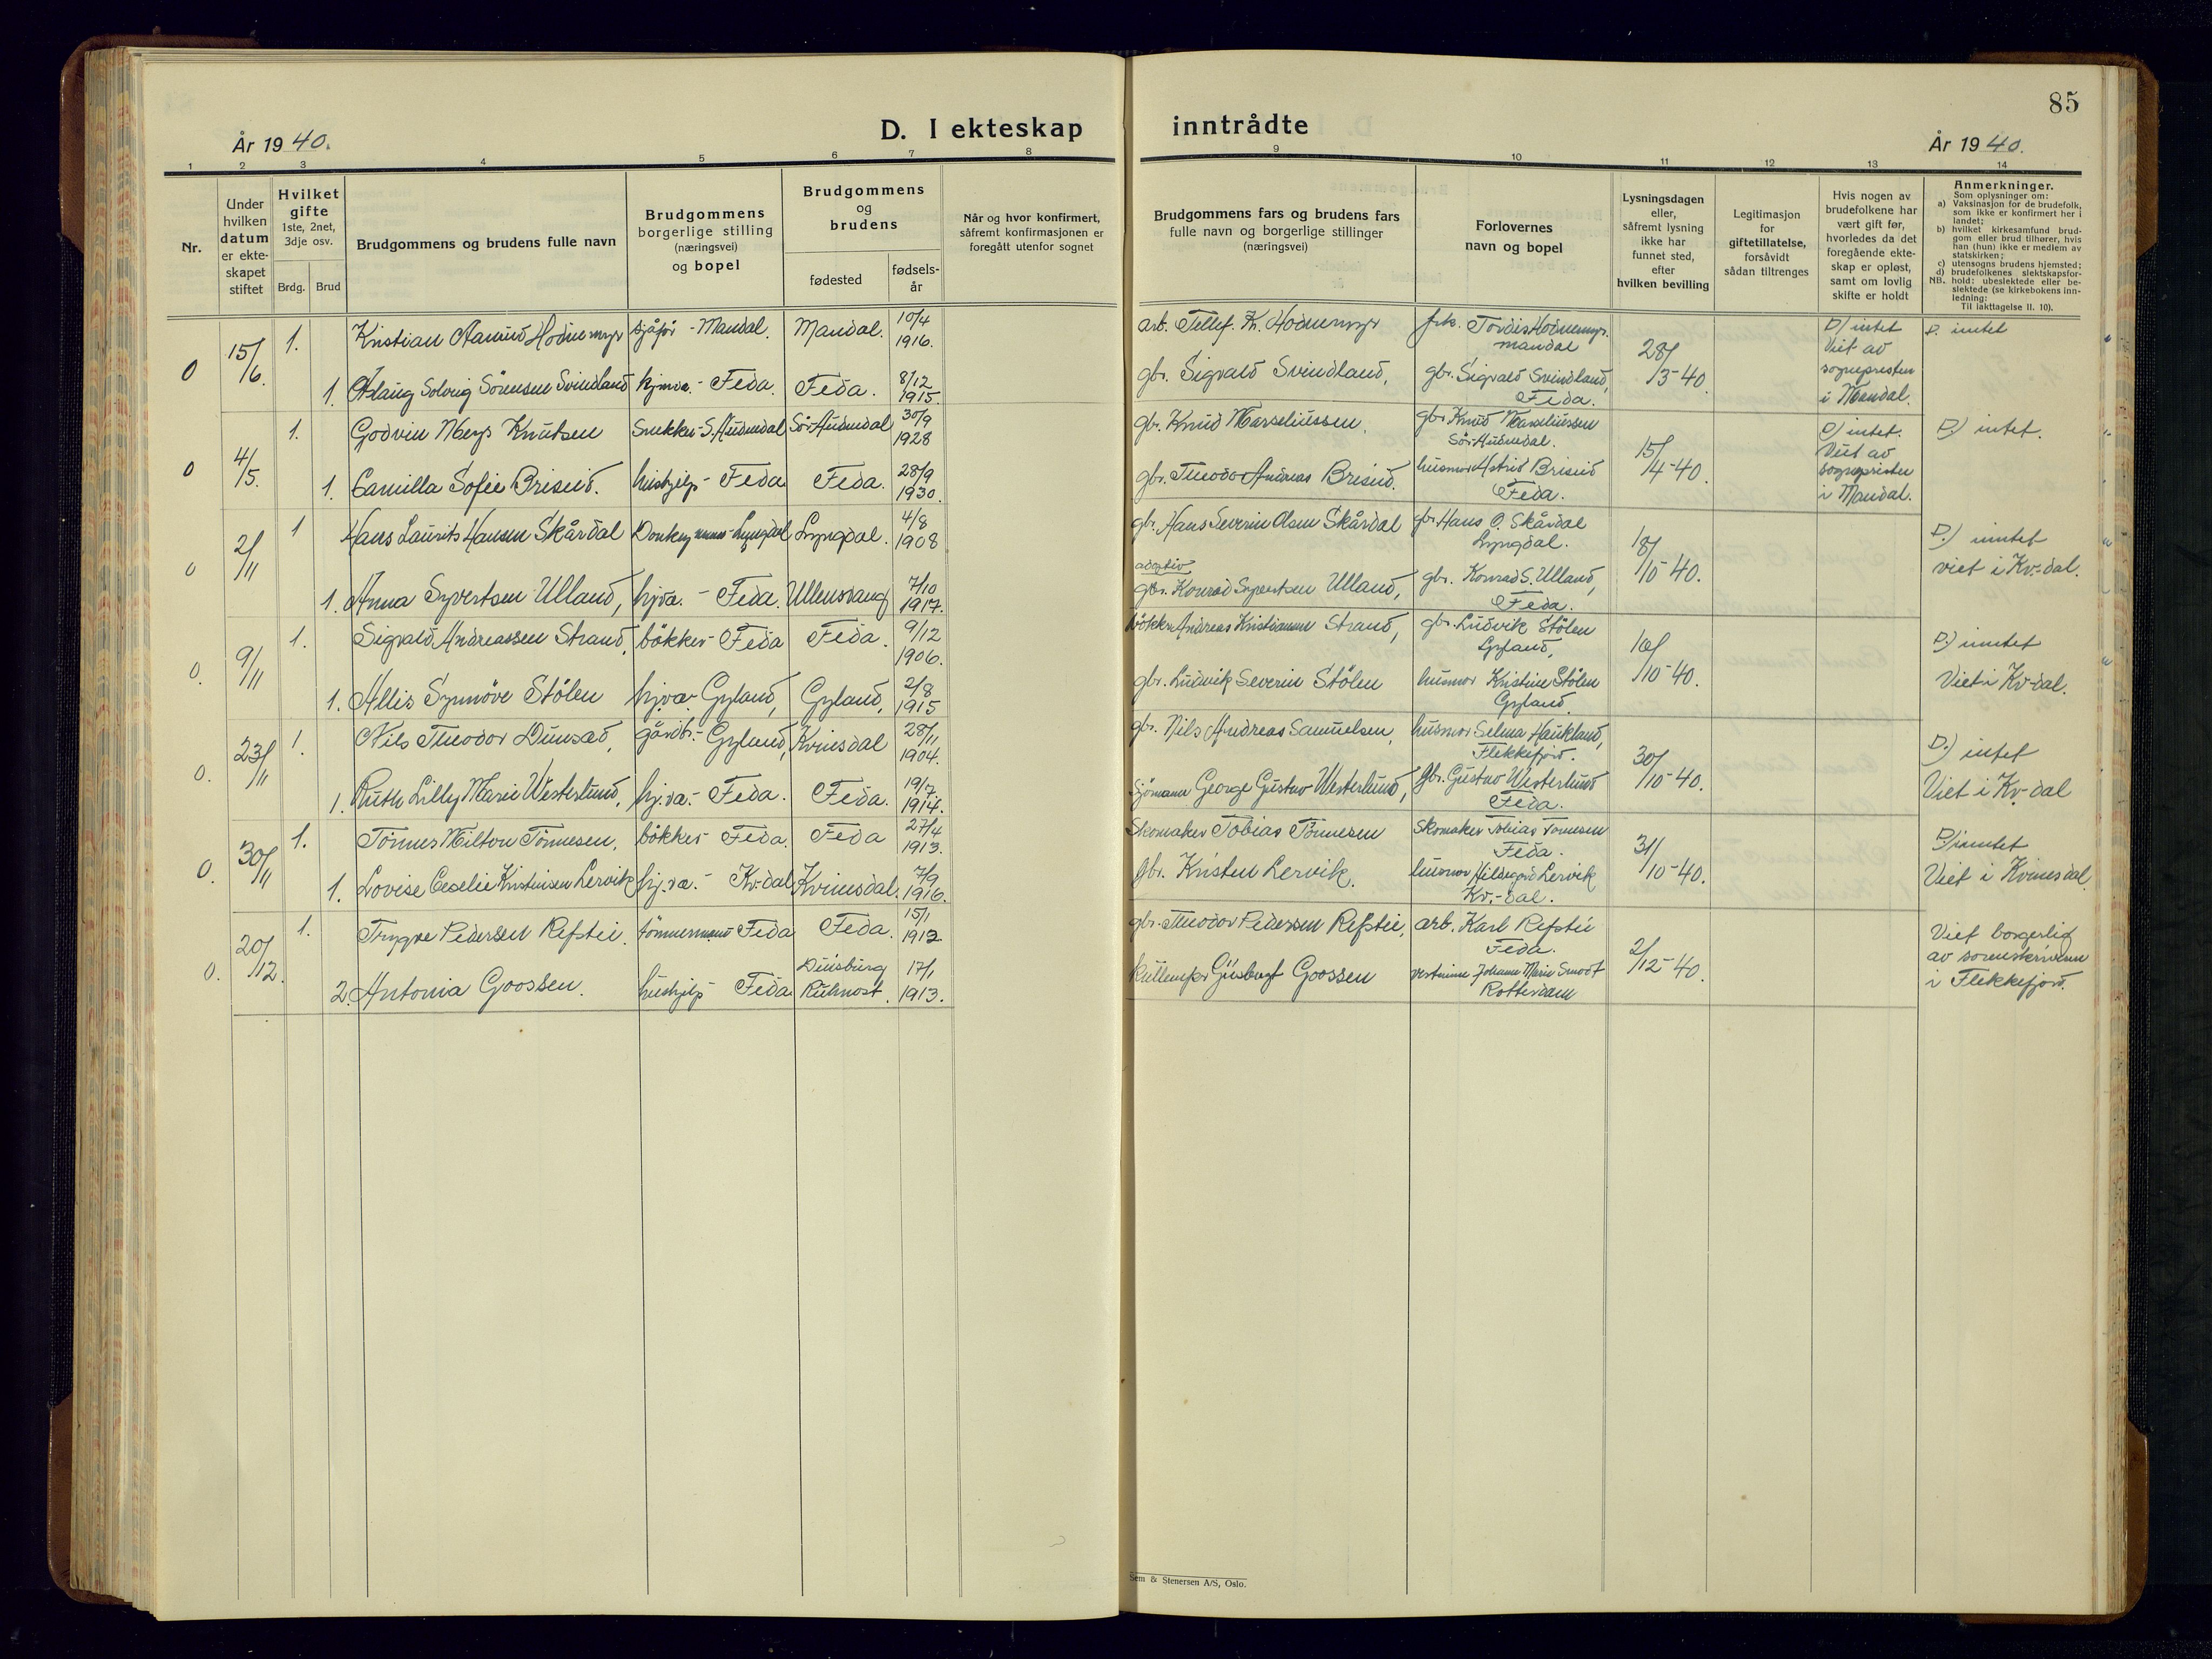 85
År 1940.
D. I ekteskap inntrådte
År 1940.
1 2 3 4 5 6 7 8 9 10 11 12 13 14
Nr.
Under
hvilken
datum
er ekte-
skapet
stiftet
Hvilket
gifte
1ste, 2net,
3dje osv.
Brdg. Brud
Brudgommens og brudens fulle navn
Brudgommens
borgerlige stilling
(næringsvei)
og bopel
Brudgommens
og
brudens
fødested
fødsels-
år
Når og hvor konfirmert,
såfremt konfirmasjonen er
foregått utenfor sognet
Brudgommens fars og brudens fars
fulle navn og borgerlige stillinger
(næringsvei)
Forlovernes
navn og bopel
Lysningsdagen
eller,
såfremt lysning
ikke har
funnet sted,
efter
hvilken bevilling
Legitimasjon
for
giftetillatelse,
forsåvidt
sådan tiltrenges
Hvis nogen av
brudefolkene har
vært gift før,
hvorledes da det
foregående ekte-
skap er opløst,
samt om lovlig
skifte er holdt
Anmerkninger.
Som oplysninger om:
a) Vaksinasjon for de brudefolk,
som ikke er konfirmert her i
landet;
b) hvilket kirkesamfund brud-
gom eller brud tilhører, hvis
han (hun) ikke er medlem av
statskirken;
c) utensogns brudens hjemsted;
d) brudefolkenes slektskapsfor-
NB. hold: ubeslektede eller be-
slektede (se kirkebokens inn-
ledning:
Til iakttagelse II. 10).
0 15/6. 1. Kristian Aamund Hodnemyr sjåfør - Mandal. Mandal. 10/4 1916.
arb. Tellef. Kr. Hodnemyr frk. Tordis Hodnemyr.
mandal
28/3-40.
D) intet
Viet av
sognepresten
i Mandal.
D. intet
1. Aslaug Solveig Sörensen Svindland hjmv. - Feda. Feda. 8/12 1915.
gbr. Sigvald Svindland, gbr. Sigvald Svindland,
Feda.
0 4/5. 1. Godvin Meyr Knutsen Snekker - S. Audnedal Sör Audnedal 30/9 1928
gbr. Knud Marseliussen. gbr. Knud Marseliussen
Sör Audnedal.
15/4-40.
D) intet.
Viet av
sognepresten
i Mandal.
D) intet.
1. Camilla Sofie Briseid. hushjelp - Feda Feda. 28/9 1930.
gbr. Theodor Andreas Briseid. husmor Astrid Briseid
Feda.
0 2/11 1 Hans Laurits Hansen Skårdal Donkeymann - Lyngdal Lyngdal. 4/8 1908
gbr. Hans Severin Olsen Skårdal gbr. Hans O. Skårdal
Lyngdal.
18/10-40.
D.) inntet
viet i Kv.-dal.
1. Anna Syvertsen Ulland, hjva. - Feda. Ullensvang 7/10 1917.
adoptiv
gbr. Konrad Syvertsen Ulland, gbr. Konrad S. Ulland,
Feda.
0. 9/11 1. Sigvald Andreassen Strand, bökker - Feda Feda. 9/12 1906.
bökker Andreas Kristiansen Strand, gbr. Ludvik Stölen
Gyland,
10/10-40.
D.) inntet
Viet i Kv-dal.
1. Allis Synnöve Stölen hj.va. Gyland, Gyland, 2/8 1915
gbr. Ludvik Severin Stölen husmor Kristine Stölen
Gyland.
0. 23/11 1. Nils Theodor Dunsæd, gårdbr. - Gyland, Kvinesdal 28/11 1904.
gbr. Nils Andreas Samuelsen, husmor Selma Haukland,
Flekkefjord.
30/10-40.
D.) intet
Viet i Kv-dal
1. Ruth Lilly Marie Westerlund, hj.va. - Feda. Feda. 19/7 1914.
Sjömann George Gustav Westerlund, gbr. Gustav Westerlund
Feda.
0. 30/11 1. Tönnes Milton Tönnesen, bökker - Feda. Feda 27/4 1913.
Skomaker Tobias Tönnesen Skomaker Tobias Tönnesen
Feda.
31/10-40.
D) inntet
Viet i Kvinesdal
1. Lovise Ceselie Kristensen Lervik hj.va. - Kv.dal Kvinesdal. 7/9 1916.
gbr. Kristen Lervik. husmor Hildegord Lervik
Kv.-dal.
0. 20/12. 1. Trygve Pedersen Refstie. tömmermann Feda Feda. 15/1 1912
gbr. Theodor Pedersen Refstie, arb. Karl Refstie
Feda.
2/12-40.
Viet borgerlig
av sorenskriveren
i Flekkefjord.
2. Antonia Goossen. hushjelp Feda Duisburg
Ruhrort. 17/1 1913.
Gijsbert Goossen vertinne Johanna Marie Smoot
Rotterdam
Sem & Stenersen A/S, Oslo.